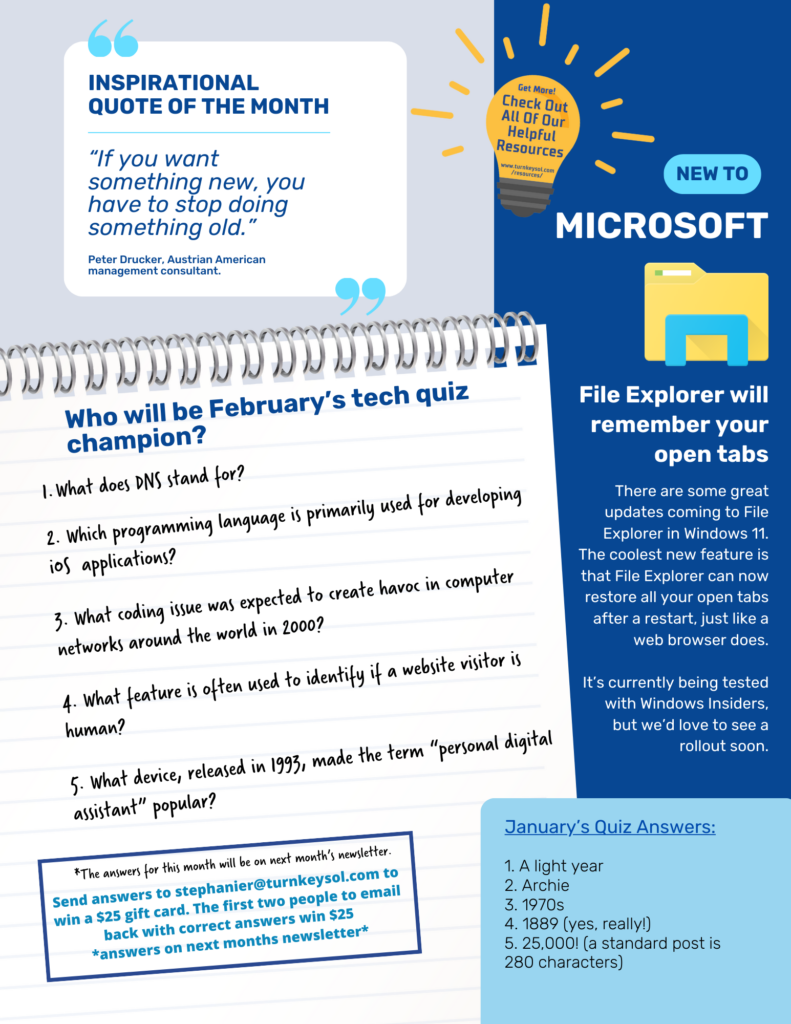 INSPIRATIONAL
QUOTE OF THE MONTH
“If you want
something new, you
have to stop doing
something old.”
Peter Drucker, Austrian American
management consultant.
Get More!
Check Out
All Of Our
Helpful
Resources
www.turnkeysol.com
/resources/
NEW TO
MICROSOFT
File Explorer will
remember your
open tabs
There are some great
updates coming to File
Explorer in Windows 11.
The coolest new feature is
that File Explorer can now
restore all your open tabs
after a restart, just like a
web browser does.
It’s currently being tested
with Windows Insiders,
but we’d love to see a
rollout soon.
Who will be February’s tech quiz
champion?
1. What does DNS stand for?
2. Which programming language is primarily used for developing
ioS applications?
3. What coding issue was expected to create havoc in computer
networks around the world in 2000?
4. What feature is often used to identify if a website visitor is
human?
5. What device, released in 1993, made the term “personal digital
assistant” popular?
*The answers for this month will be on next month’s newsletter.
Send answers to stephanier@turnkeysol.com to
win a $25 gift card. The first two people to email
back with correct answers win $25
*answers on next months newsletter*
January’s Quiz Answers:
1. A light year
2. Archie
3. 1970s
4. 1889 (yes, really!)
5. 25,000! (a standard post is
280 characters)